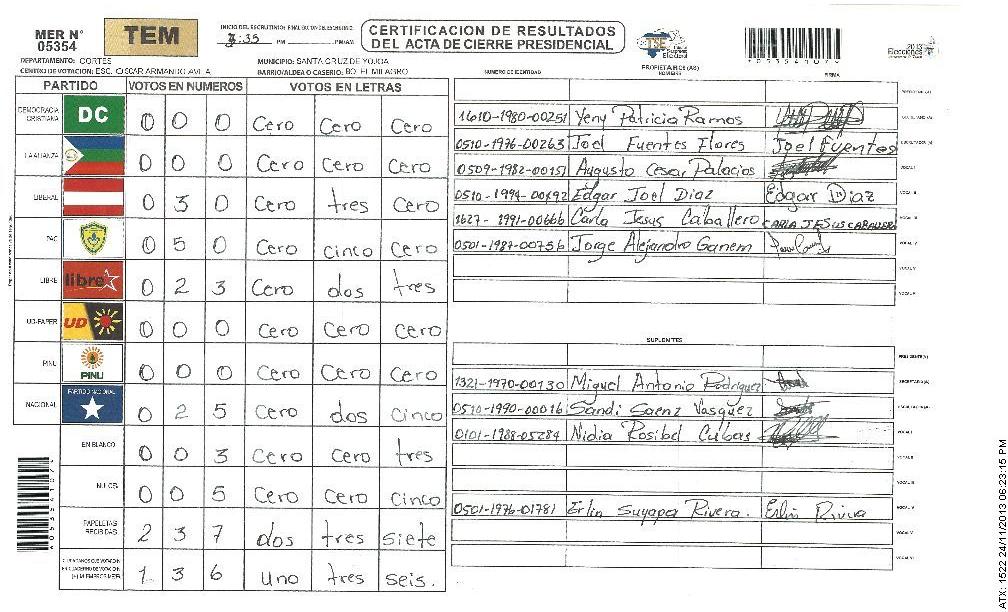 MER N° 05354
TEM
INICIO DEL ESCRUTINIO:
3:35 PM
PM/AM
CERTIFICACION DE RESULTADOS
DEL ACTA DE CIERRE PRESIDENCIAL
TSE Tribunal Supremo Electoral
2013 Elecciones
DEPARTAMENTO: CORTES
MUNICIPIO: SANTA CRUZ DE YOJOA
CENTRO DE VOTACION: ESC. OSCAR ARMANDO AVILA
BARRIO/ALDEA O CASERIO: BO. EL MILAGRO
PROPIETARIOS (AS)
NUMERO DE IDENTIDAD NOMBRE FIRMA
PARTIDO VOTOS EN NUMEROS VOTOS EN LETRAS
DEMOCRACIA CRISTIANA DC 0 0 0 Cero Cero Cero
LA ALIANZA 0 0 0 Cero Cero Cero
LIBERAL 0 3 0 Cero tres Cero
PAC 0 5 0 Cero cinco Cero
LIBRE libre 0 2 3 Cero dos tres
UD-FAPER UD 0 0 0 Cero Cero Cero
PINU PINU 0 0 0 Cero Cero Cero
NACIONAL PARTIDO NACIONAL 0 2 5 Cero dos cinco
EN BLANCO 0 0 3 Cero Cero tres
NULOS 0 0 5 Cero Cero cinco
PAPELETAS RECIBIDAS 2 3 7 dos tres siete
1 3 6 uno tres seis.
1610-1980-00251 Yeny Patricia Ramos
0510-1976-00263 Joel Fuentes Flores Joel Fuentes
0509-1982-00151 Augusto Cesar Palacios
0510-1994-00192 Edgar Joel Diaz Edgar Diaz
1627-1991-00666 Carla Jesus Caballero CARLA JESUS CABALLERO
0501-1987-00756 Jorge Alejandro Ganem
SUPLENTES
1321-1970-00130 Miguel Antonio Rodriguez
0510-1990-00016 Sandi Saenz Vasquez
0101-1988-05284 Nidia Rosibel Cubas
0501-1976-01781 Erlin Suyapa Rivera. Erlin Rivera
ATX: 1522 24/11/2013 06:23:15 PM